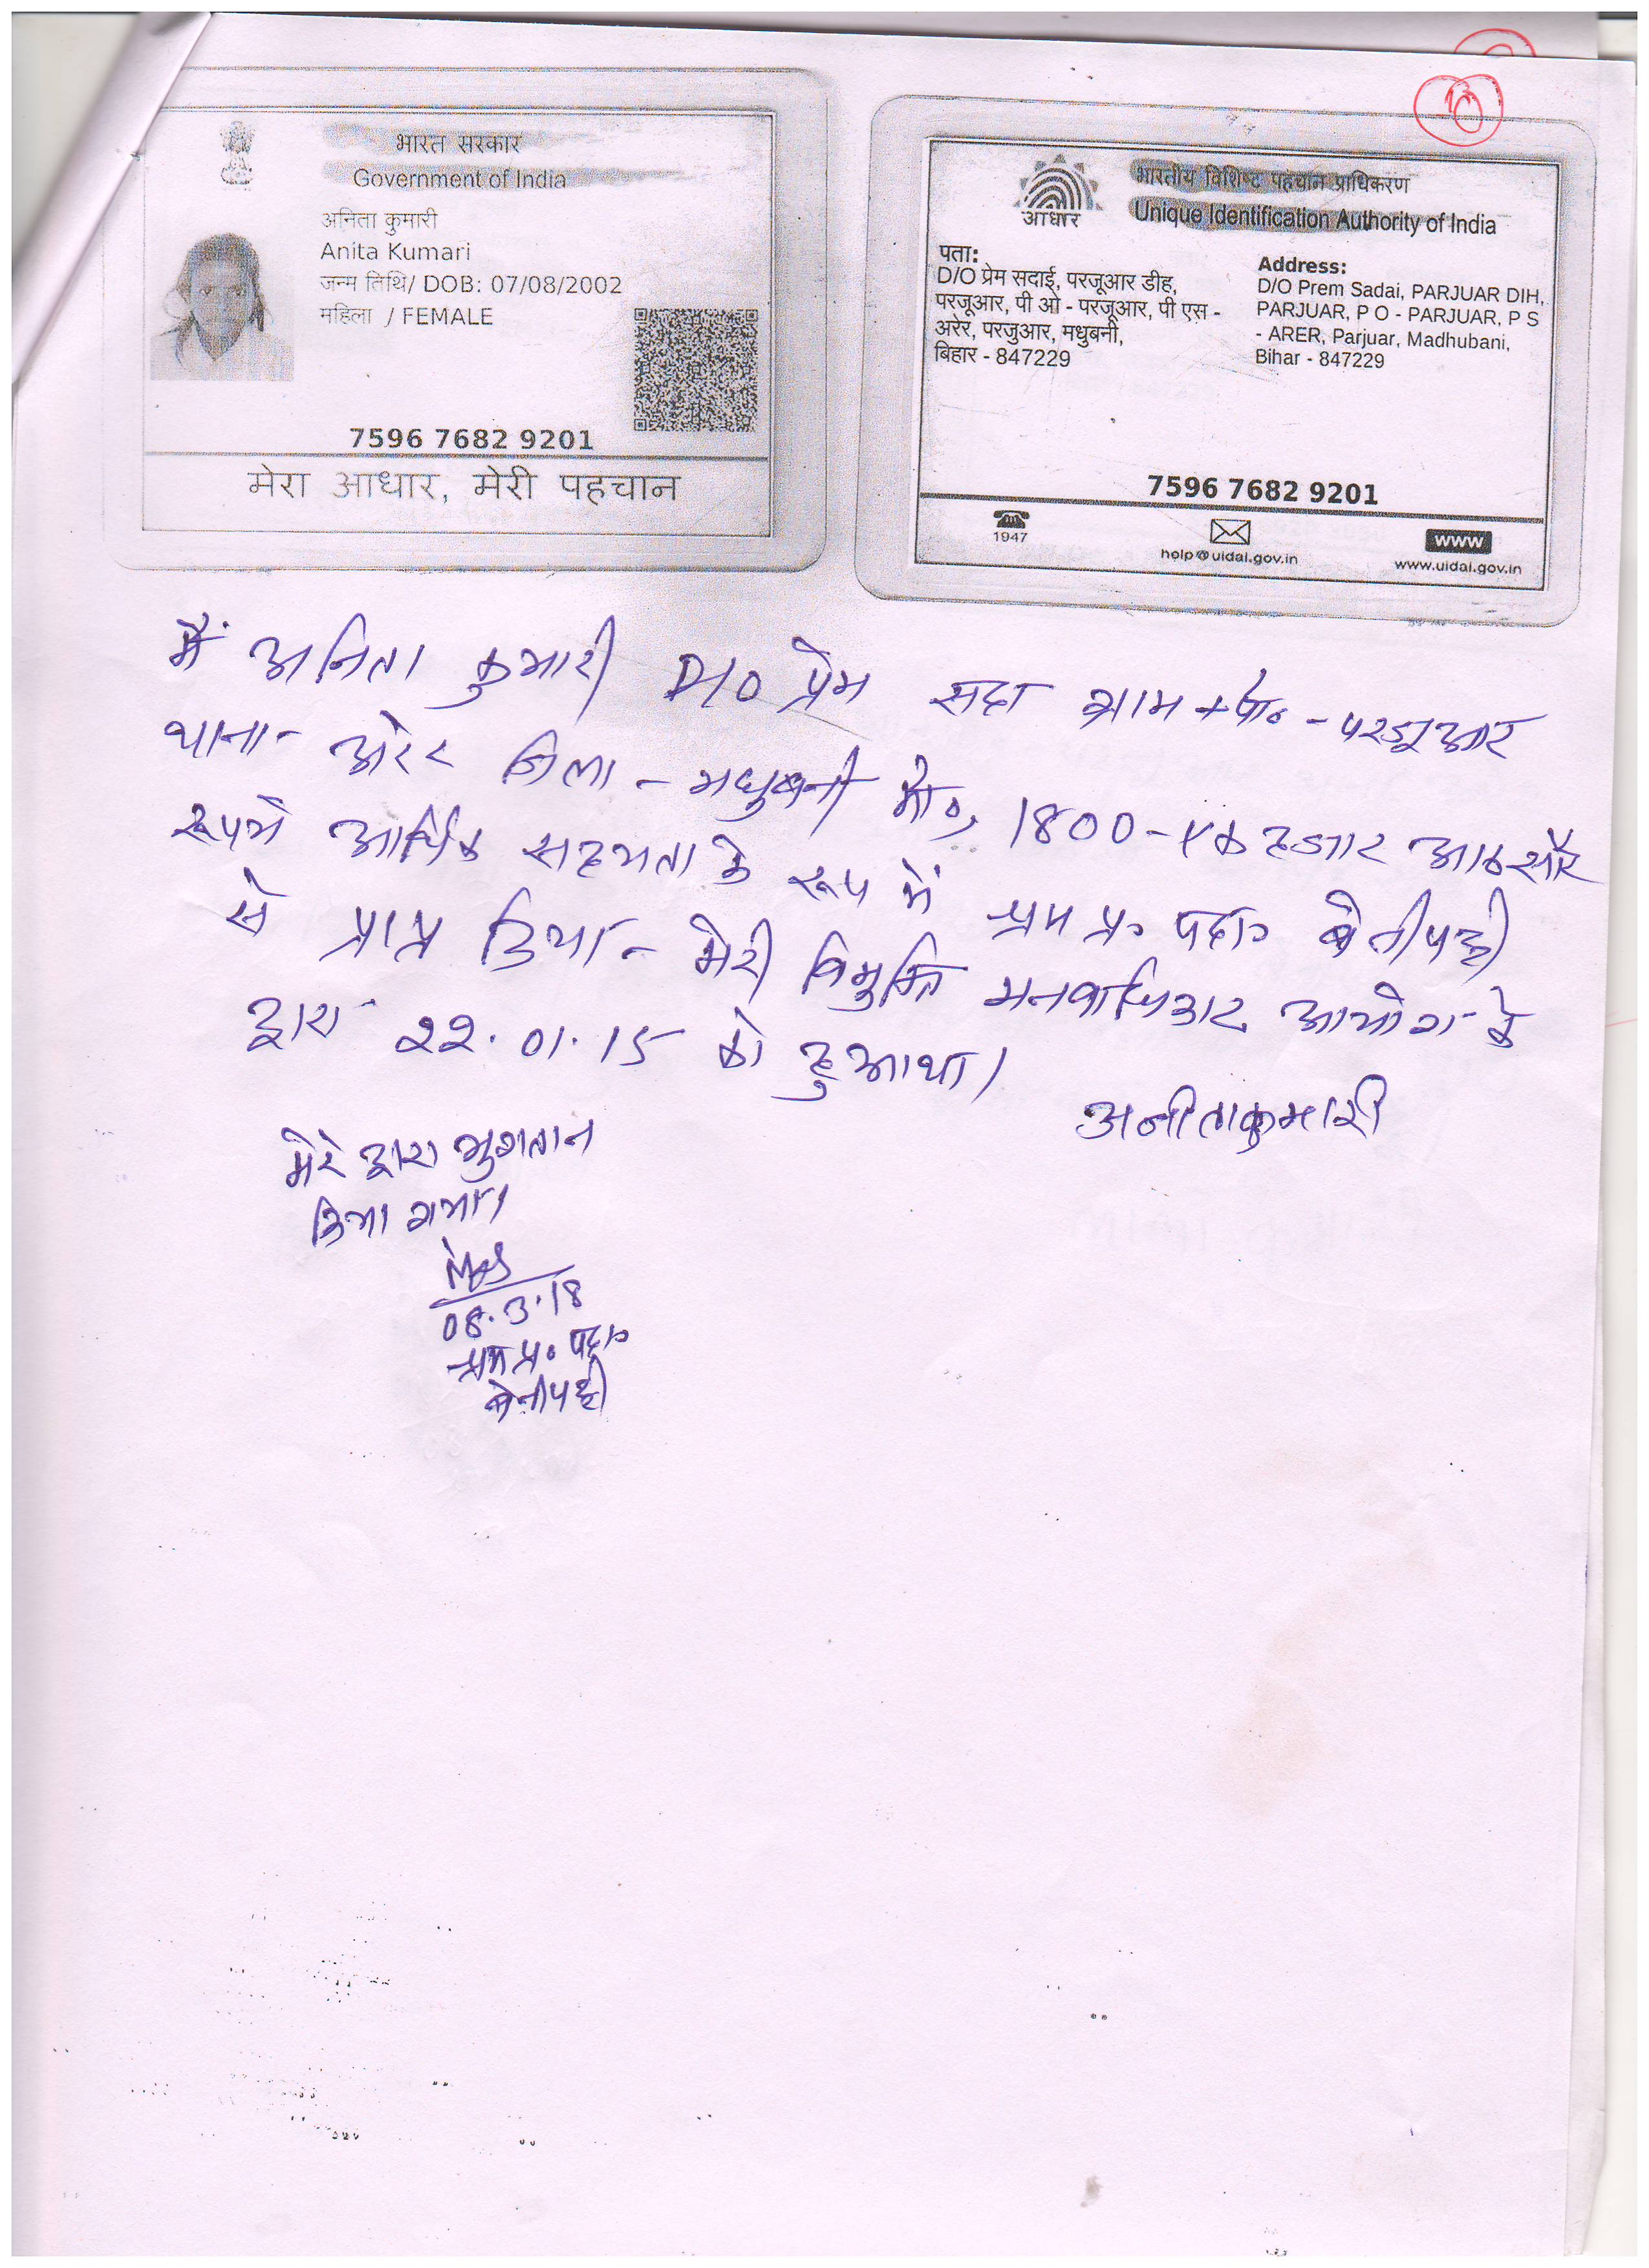 भारत सरकार
Government of India
अनिता कुमारी
Anita Kumari
जन्म तिथि/ DOB: 07/08/2002
महिला / FEMALE
7596 7682 9201
मेरा आधार, मेरी पहचान
भारतीय विशिष्ट पहचान प्राधिकरण
Unique Identification Authority of India
आधार
पता:
D/O प्रेम सदाई, परजूआर डीह,
परजूआर, पी ओ - परजूआर, पी एस -
अरेर, परजुआर, मधुबनी,
बिहार - 847229
Address:
D/O Prem Sadai, PARJUAR DIH,
PARJUAR, P O - PARJUAR, P S
- ARER, Parjuar, Madhubani,
Bihar - 847229
7596 7682 9201
1947
help@uidai.gov.in
www
www.uidai.gov.in
मैं अनिता कुमारी D/O प्रेम सदा ग्राम + पो० - परजुआर
थाना - अरेर जिला - मधुबनी मो०, 1800 - एक हजार आठ सौ
रूपये आर्थिक सहयता के रूप में श्रम प्र० पदा० बेनीपट्टी
से प्राप्त किया - मेरी विमुक्ति मनवाधिकार आयोग के
द्वारा 22.01.15 को हुआ था।
अनीता कुमारी
मेरे द्वारा भुगतान
किया गया।
08.3.18
श्रम प्र० पदा०
बेनीपट्टी